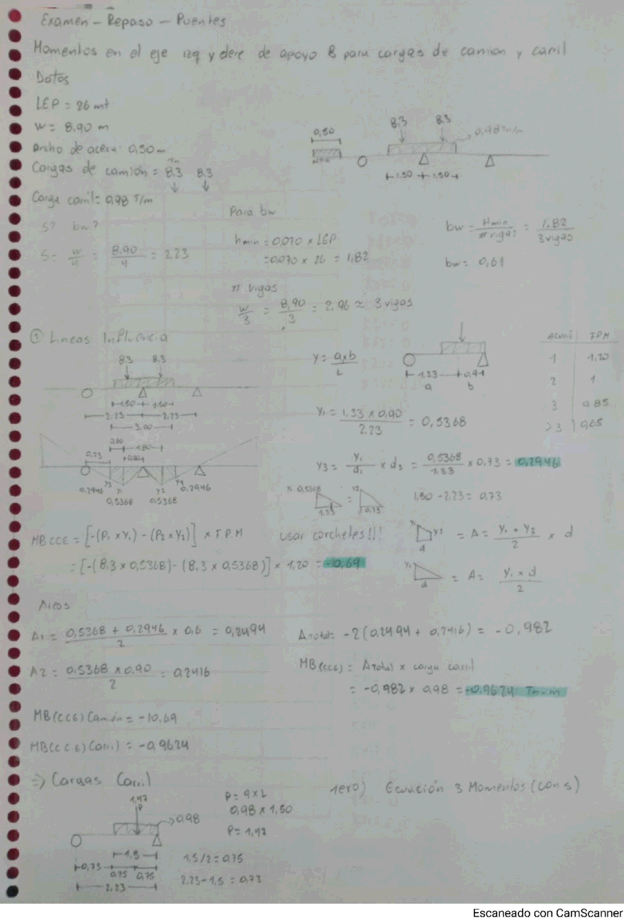 Examen - Repaso - Puentes
Momentos en el eje izq y dere de apoyo B para cargas de camion y carril
Datos
LEP = 26 mt
W = 8.90 m
Ancho de acera: 0,50 m
Cargas de camión = 8.3 8.3
Tn
Carga carril = 0,98 T/m
0,50
8.3 8.3
0,98 T/m
1.50 1.50
S? bw?
S = w/4 = 8.90/4 = 2.23
Para bw
hmin = 0,070 x LEP
= 0,070 x 26 = 1,82
# vigas
w/3 = 8,90/3 = 2,96 ≈ 3 vigas
bw = Hmin/# vigas = 1,82/3 vigas
bw = 0,61
① Lineas Influencia
8.3 8.3
1.50 1.50
2.23 2.23
3.00
0,73
0,2946 0,5368 0,5368 0,2946
y3 y1
y = axb/L
1.33 0.9
a b
y1 = 1,33 x 0,90/2.23 = 0,5368
y3 = y1/d1 x d3 = 0,5368/1.33 x 0,73 = 0,2946
0,5368
1.50 - 2.23 = 0,73
T.P.M
1 1,20
2 1
3 0,85
>3 0,65
MB CCE = [-(P1 x Y1) - (P2 x Y2)] x T.P.M
= [-(8,3 x 0,5368) - (8,3 x 0,5368)] x 1,20 = -10,69
usar corchetes!!!
= A = y1 + y2/2 x d
= A = y1 x d/2
Areas
A1 = 0,5368 + 0,2946/2 x 0,6 = 0,2494
A2 = 0.5368 x 0.90/2 = 0,2416
A total = -2(0,2494 + 0,2416) = -0,982
MB(CCE) = A total x carga carril
= -0,982 x 0,98 = -0,9624 Tn.m
MB(CCE) Camión = -10,69
MB(CCE) Carril = -0,9624
=> Cargas Carril
1,47
P
0.98
1.5
0,73 0,75 0,75
2.23
P = q x L
0,98 x 1,50
P = 1,47
1.5/2 = 0.75
2.23 - 1,5 = 0,73
1ero) Ecuación 3 Momentos (con s)
Escaneado con CamScanner